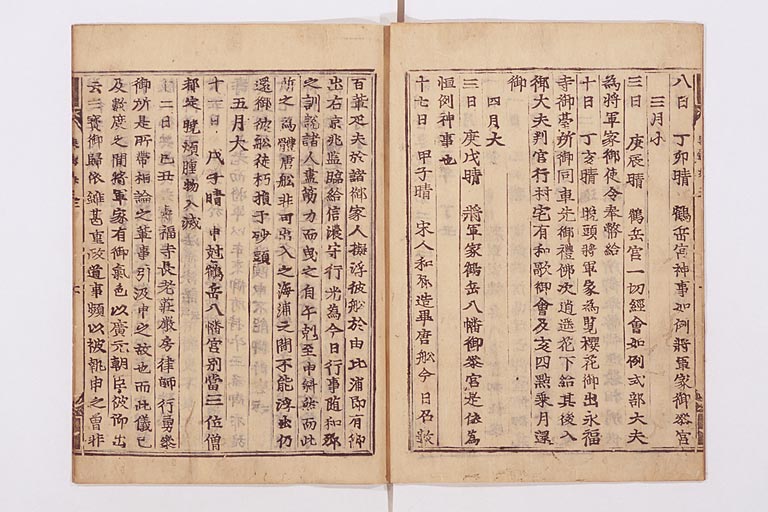 八日　丁卯晴　鶴岳宮神事如例將軍家御參宮
三月小
三日　庚辰晴　鶴岳宮一切經會如例式部大夫
為將軍家御使令奉幣給
十日　丁亥晴　晩頭將軍家為覧櫻花御出永福
寺御堂所御同車先御禮佛次逍遥花下給其後入
御大夫判官行村宅有和歌御會及亥四點乗月還
御
四月大
三日　庚戌晴　將軍家鶴岳八幡御參宮是依為
恒例神事也
十七日　甲子晴　宋人和卿造畢唐舩今日召數
百輩疋夫於諸御家人擬浮彼舩於由比浦即有御
出右京兆監臨給信濃守行光為今日行事随和卿
之訓説諸人盡筋力而曳之自午剋至申斜然而此
所之為體唐舩非可出入之海浦之間不能浮出仍
還御彼舩徒朽損于砂頭
五月大
十一日　戊子晴　申尅鶴岳八幡宮別當三位僧
都定曉煩腫物入滅
十二日　己丑　壽福寺長老莊嚴房律師行勇參
御所是所帯相論之輩事引汲申之故也而此儀已
及數度之間將軍家有御氣色以廣元朝臣被仰出
云三寳御歸依雖甚重政道事頻以被執申之曽非